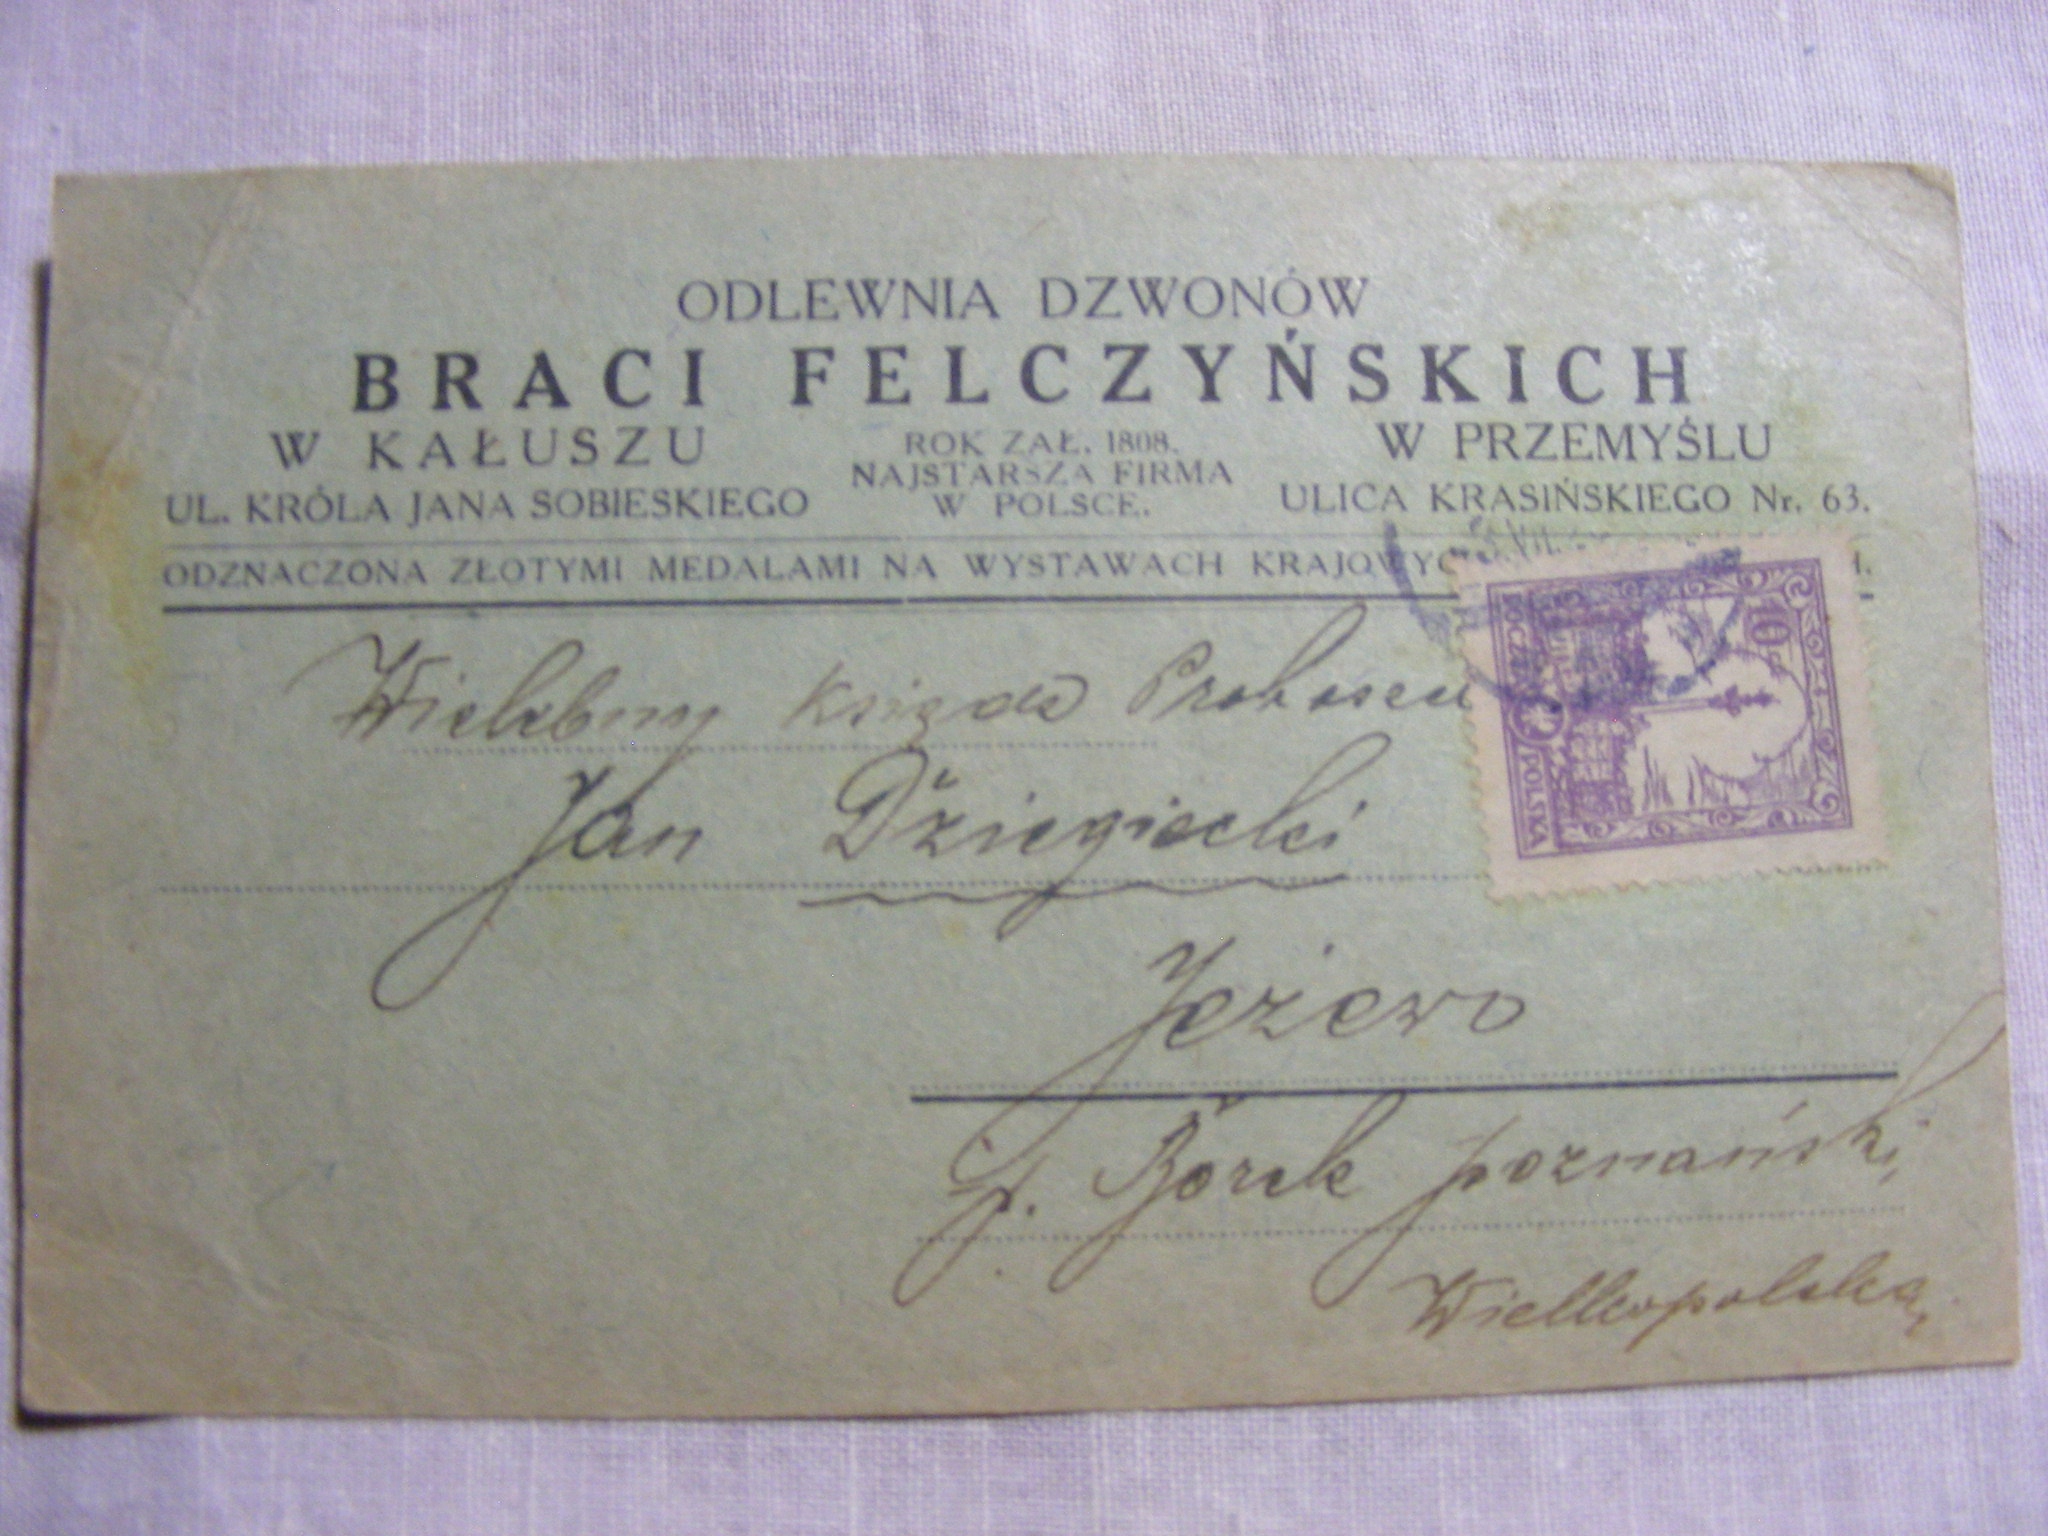 ODLEWNIA DZWONÓW
BRACI FELCZYŃSKICH
W KAŁUSZU
UL. KRÓLA JANA SOBIESKIEGO
ROK ZAŁ. 1808.
NAJSTARSZA FIRMA
W POLSCE.
W PRZEMYŚLU
ULICA KRASIŃSKIEGO Nr. 63.
ODZNACZONA ZŁOTYMI MEDALAMI NA WYSTAWACH KRAJOWYC
10
POLSKA
Wielebny Ksiądz Proboszcz
Jan
Jeżewo
p. Borek poznański
Wielkopolska